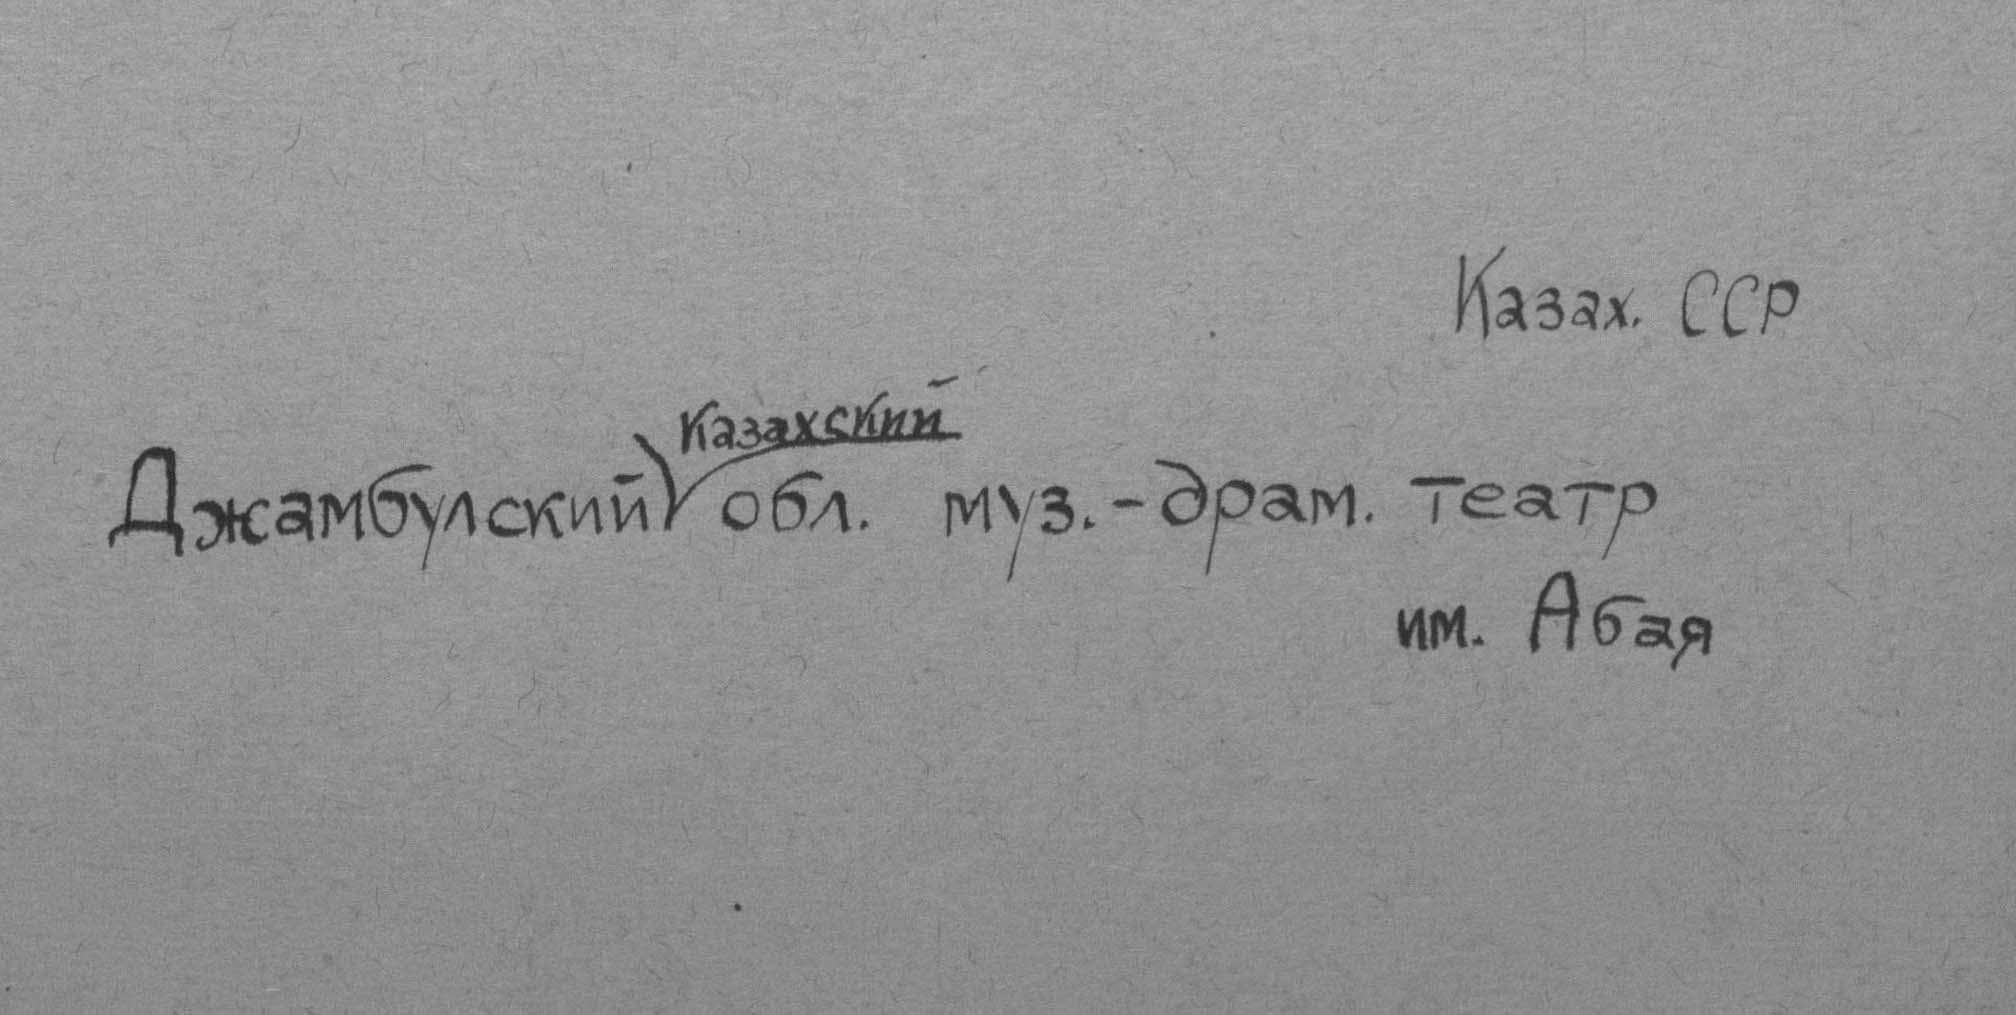 Казах. ССР
Казахский
Джамбулский обл. муз.-драм. театр
им. Абая